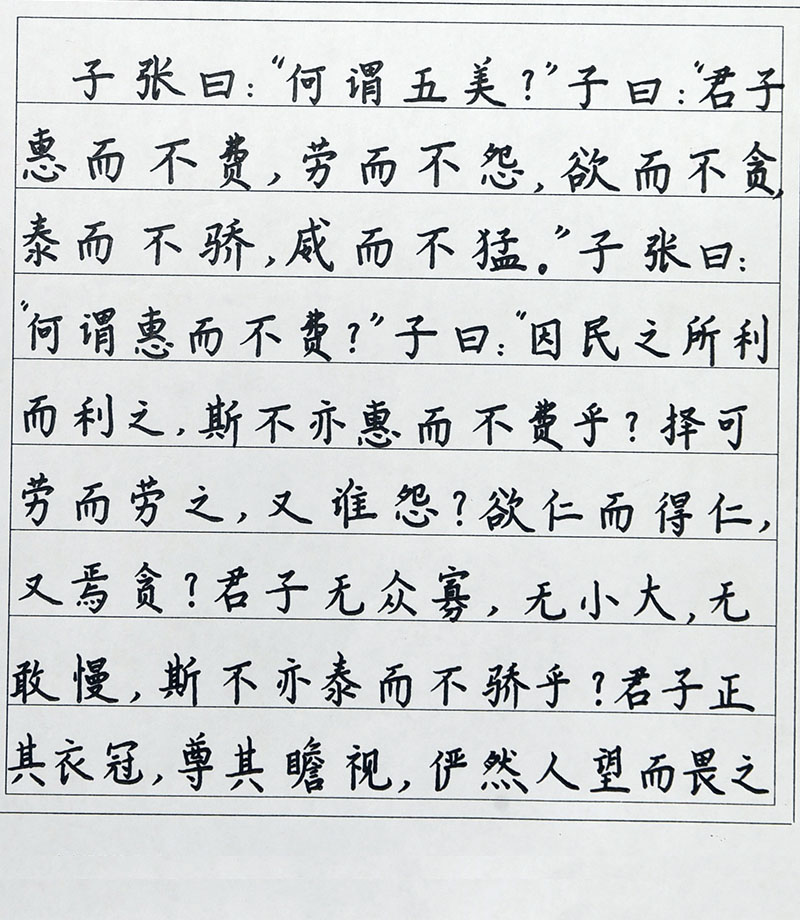 子张曰：“何谓五美？”子曰：“君子
惠而不费，劳而不怨，欲而不贪，
泰而不骄，威而不猛。”子张曰：
“何谓惠而不费？”子曰：“因民之所利
而利之，斯不亦惠而不费乎？择可
劳而劳之，又谁怨？欲仁而得仁，
又焉贪？君子无众寡，无小大，无
敢慢，斯不亦泰而不骄乎？君子正
其衣冠，尊其瞻视，俨然人望而畏之